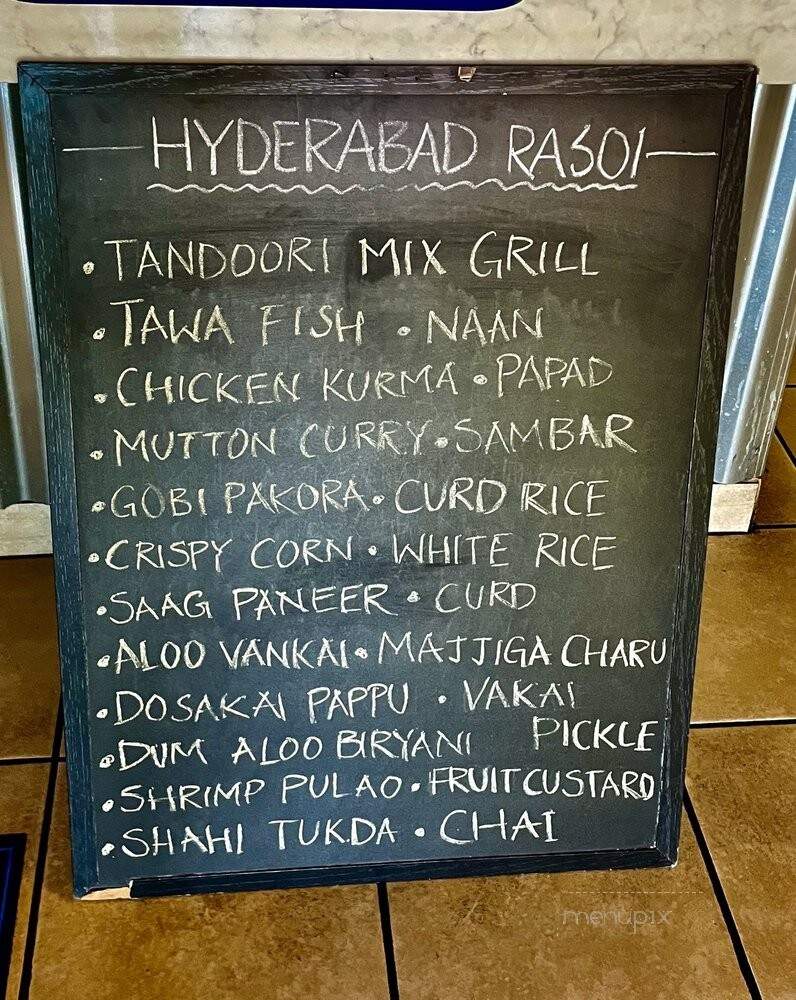 HYDERABAD RASOI
• TANDOORI MIX GRILL
• TAWA FISH • NAAN
• CHICKEN KURMA • PAPAD
• MUTTON CURRY • SAMBAR
• GOBI PAKORA • CURD RICE
• CRISPY CORN • WHITE RICE
• SAAG PANEER • CURD
• ALOO VANKAI • MAJJIGA CHARU
• DOSAKAI PAPPU • VAKAI
PICKLE
• DUM ALOO BIRYANI
• SHRIMP PULAO • FRUIT CUSTARD
• SHAHI TUKDA • CHAI
menupix